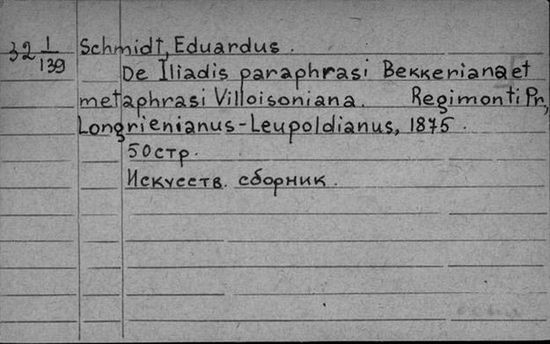 32 1/139 Schmidt, Eduardus.
De Iliadis paraphrasi Bekkeriana et
metaphrasi Villoisoniana. Regimonti Pr,
Longrienianus-Leupoldianus, 1875.
50 стр.
Искусств. сборник.